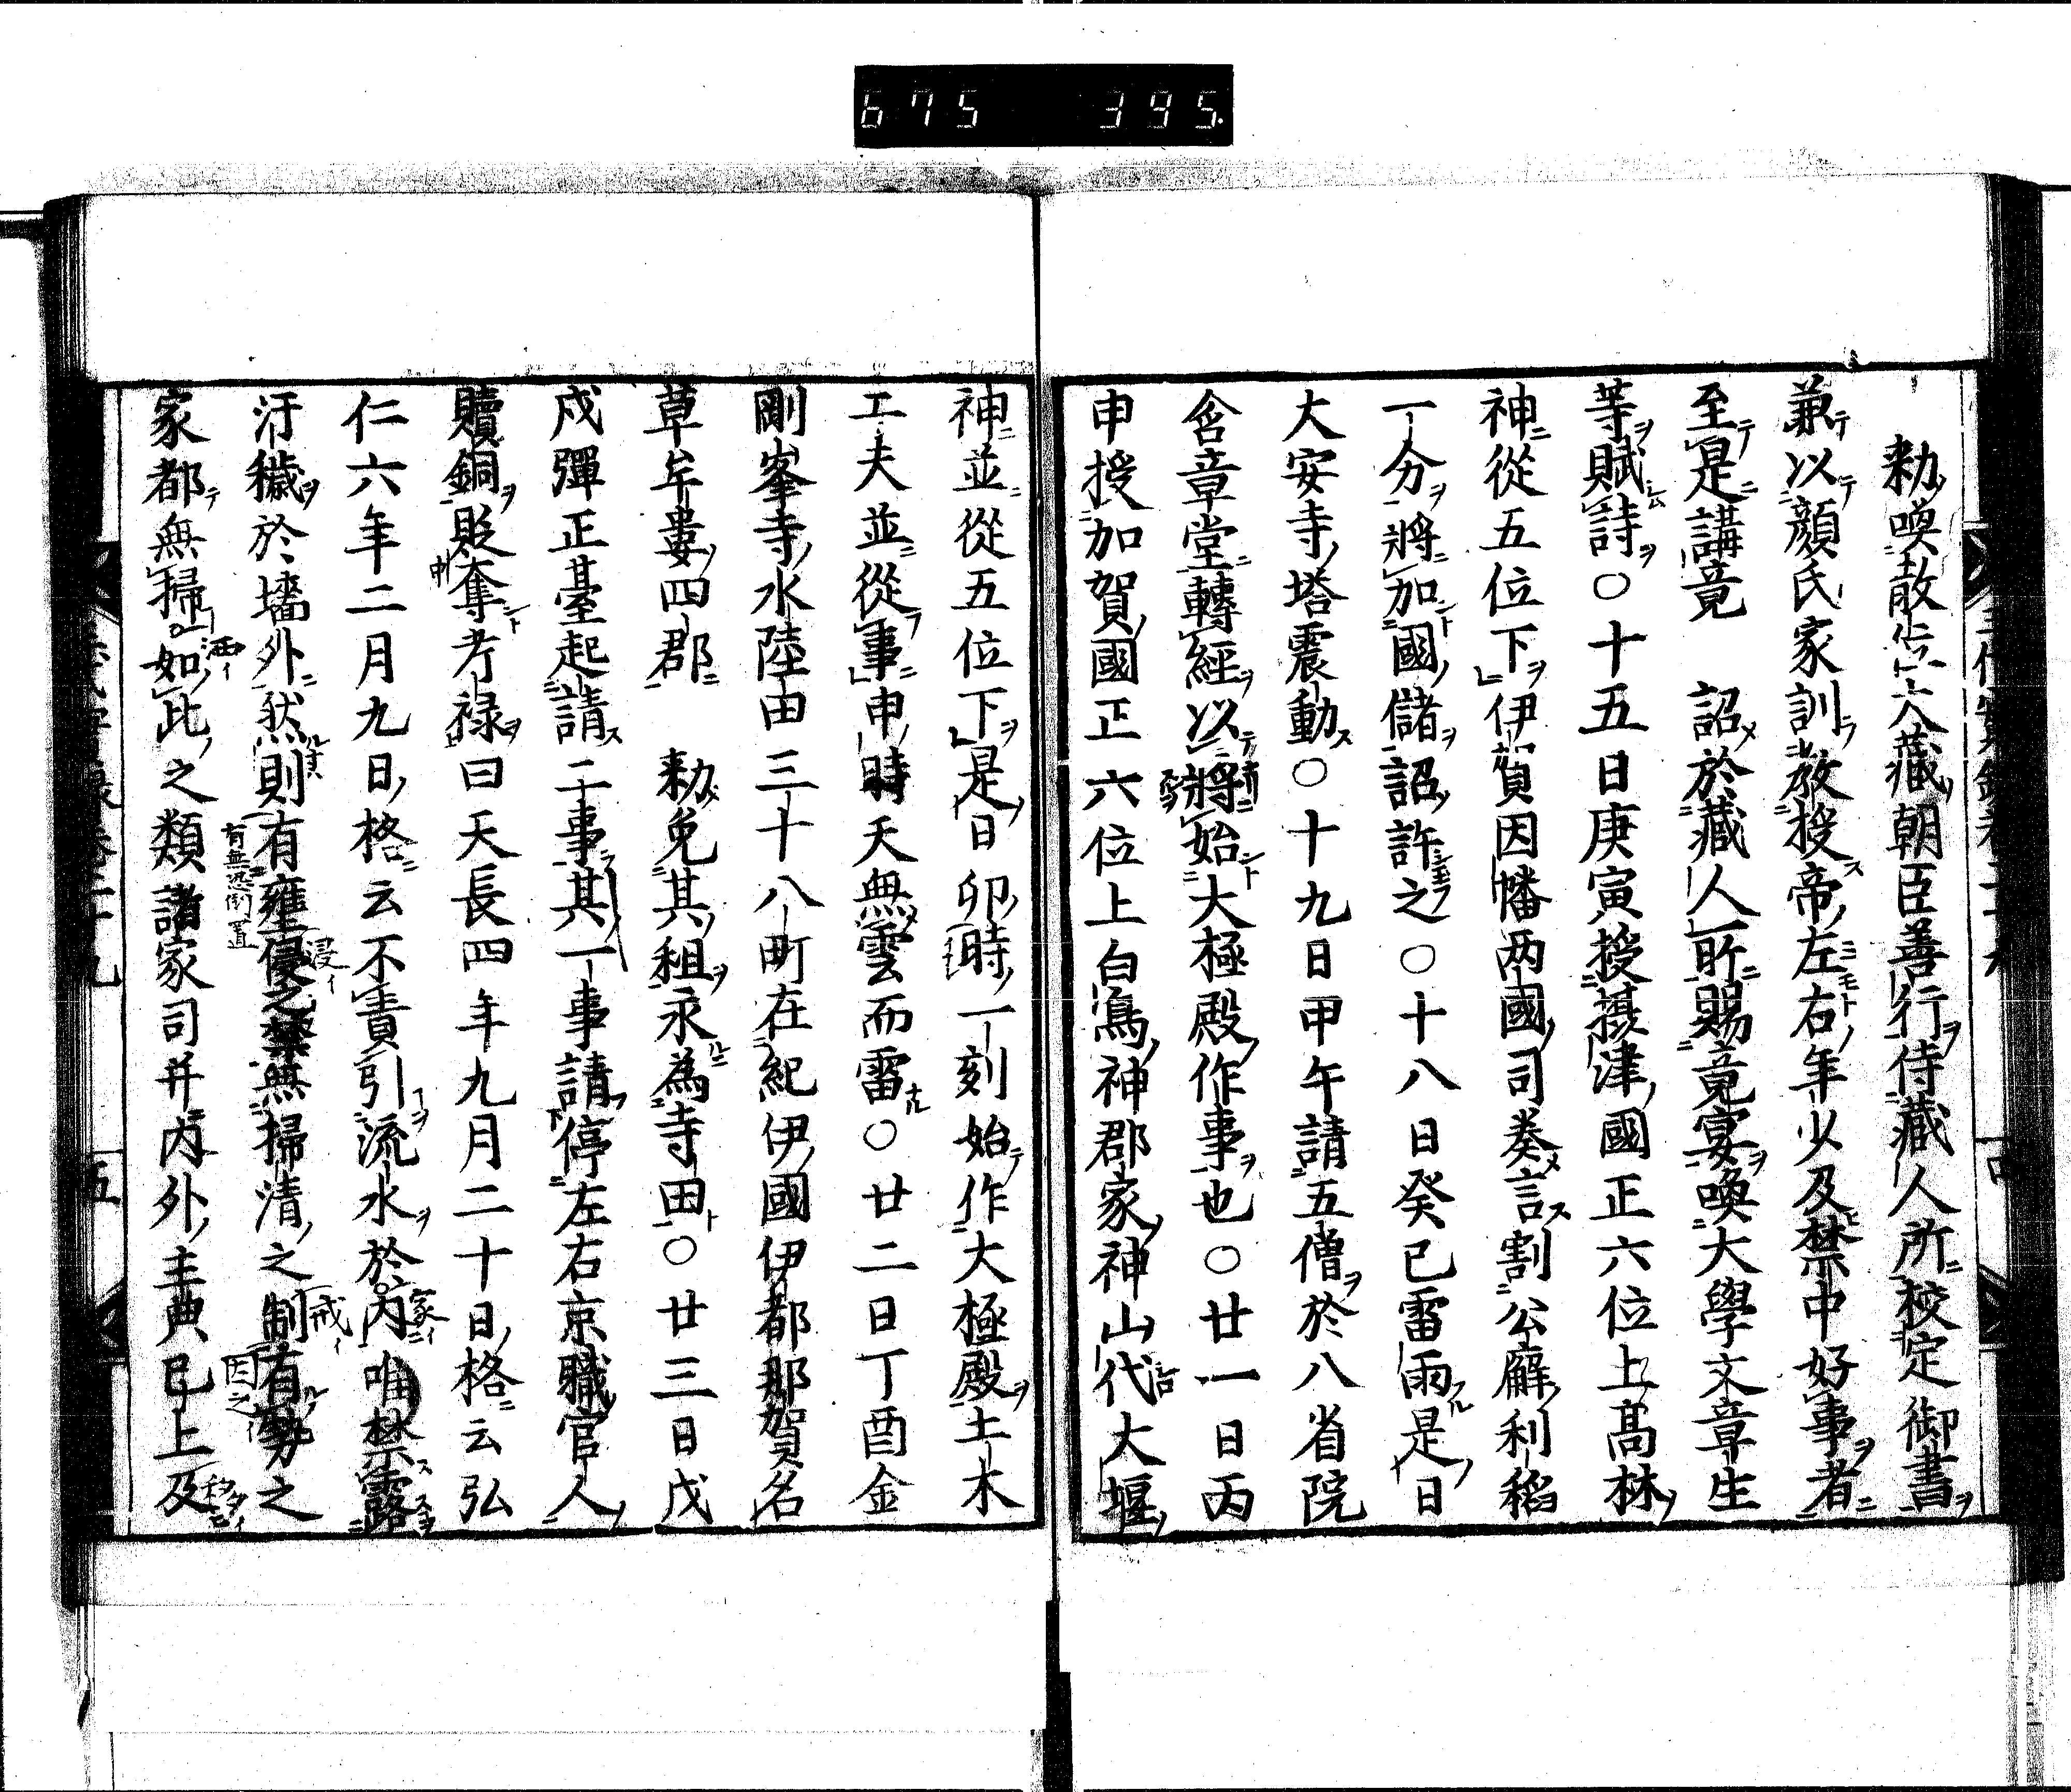 675 395.
勅喚散位大藏朝臣善行侍藏人所校定御書
兼以顔氏家訓教授帝左右年少及禁中好事者
至是講竟 詔於藏人所賜竟宴喚大學文章生
等賦詩○十五日庚寅授攝津國正六位上髙林
神從五位下伊賀因幡两國司奏言割公廨利稻
一分將加國儲詔許之○十八日癸巳雷雨是日
大安寺塔震動○十九日甲午請五僧於八省院
含章堂轉經以將始大極殿作事也○廿一日丙
申授加賀國正六位上白鳥神郡家神山代大堰
神並從五位下是日卯時一刻始作大極殿土木
工夫並從事申時天無雲而雷○廿二日丁酉金
剛峯寺水陸田三十八町在紀伊國伊都那賀名
草牟婁四郡 勅免其租永為寺田○廿三日戊
戌彈正臺起請二事其一事請停左右京職官人
贖銅貶奪考祿曰天長四年九月二十日格云弘
仁六年二月九日格云不責引流水於内唯禁露
汙穢於墻外然則有壅侵之禁無掃清之制有勢之
家都無掃如此之類諸家司并内外主典已上及
三代實錄卷二十九
五